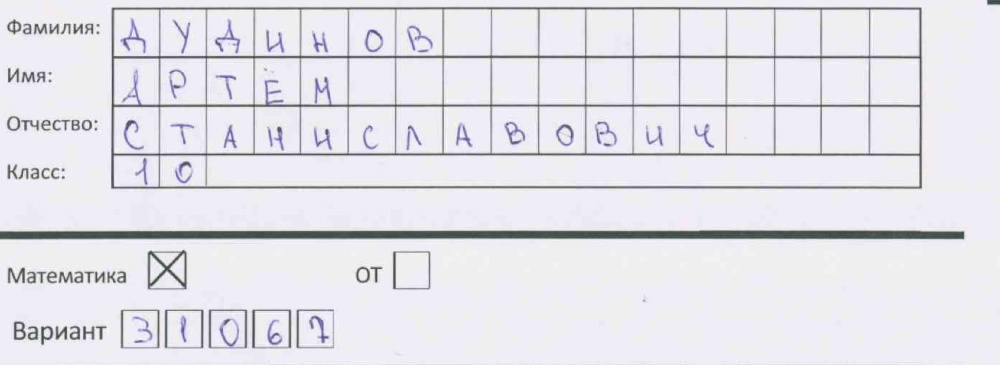 Фамилия: ДУДИНОВ
Имя: АРТЁМ
Отчество: СТАНИСЛАВОВИЧ
Класс: 10
Математика ОТ
Вариант 31067